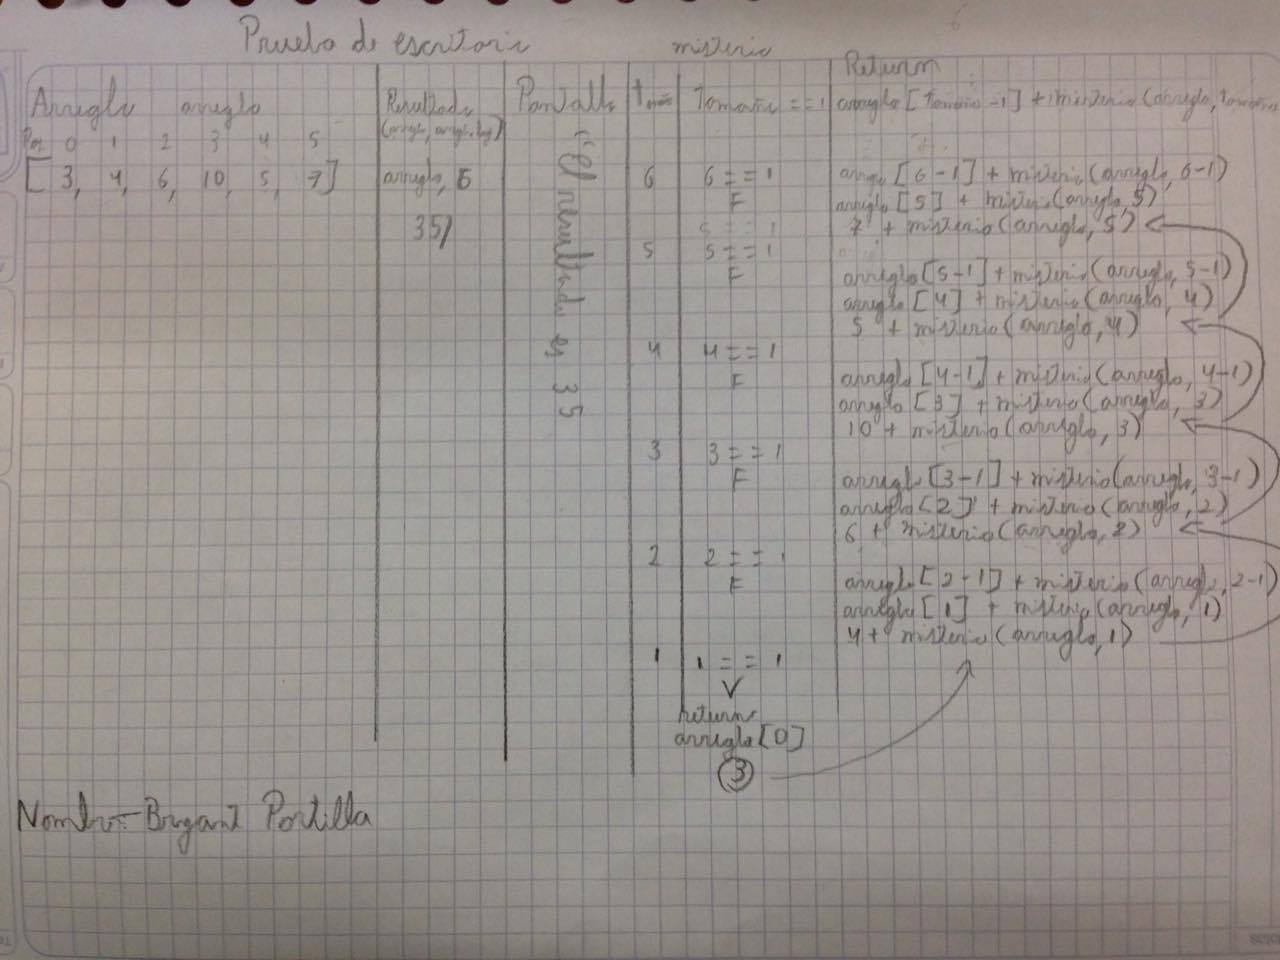 Prueba de escritorio misterio
Arreglo arreglo Resultado Pantalla Tam Tamaño == 1 Return
(arreglo, arreglo.leng) arreglo [tamaño -1] + misterio (arreglo, tamaño
Pos 0 1 2 3 4 5
[3, 4, 6, 10, 5, 7] arreglo, 6
35/
"El resultado es 35
6 6 == 1 arreglo [6-1] + misterio (arreglo, 6-1)
F arreglo [5] + misterio (arreglo, 5)
5 == 1 7 + misterio (arreglo, 5)
5 5 == 1
F arreglo [5-1] + misterio (arreglo, 5-1)
arreglo [4] + misterio (arreglo, 4)
5 + misterio (arreglo, 4)
4 4 == 1
F arreglo [4-1] + misterio (arreglo, 4-1)
arreglo [3] + misterio (arreglo, 3)
10 + misterio (arreglo, 3)
3 3 == 1
F arreglo [3-1] + misterio (arreglo, 3-1)
arreglo [2] + misterio (arreglo, 2)
6 + misterio (arreglo, 2)
2 2 == 1
F arreglo [2-1] + misterio (arreglo, 2-1)
arreglo [1] + misterio (arreglo, 1)
4 + misterio (arreglo, 1)
1 1 == 1
V
return
arreglo [0]
3
Nombre- Bryant Portilla